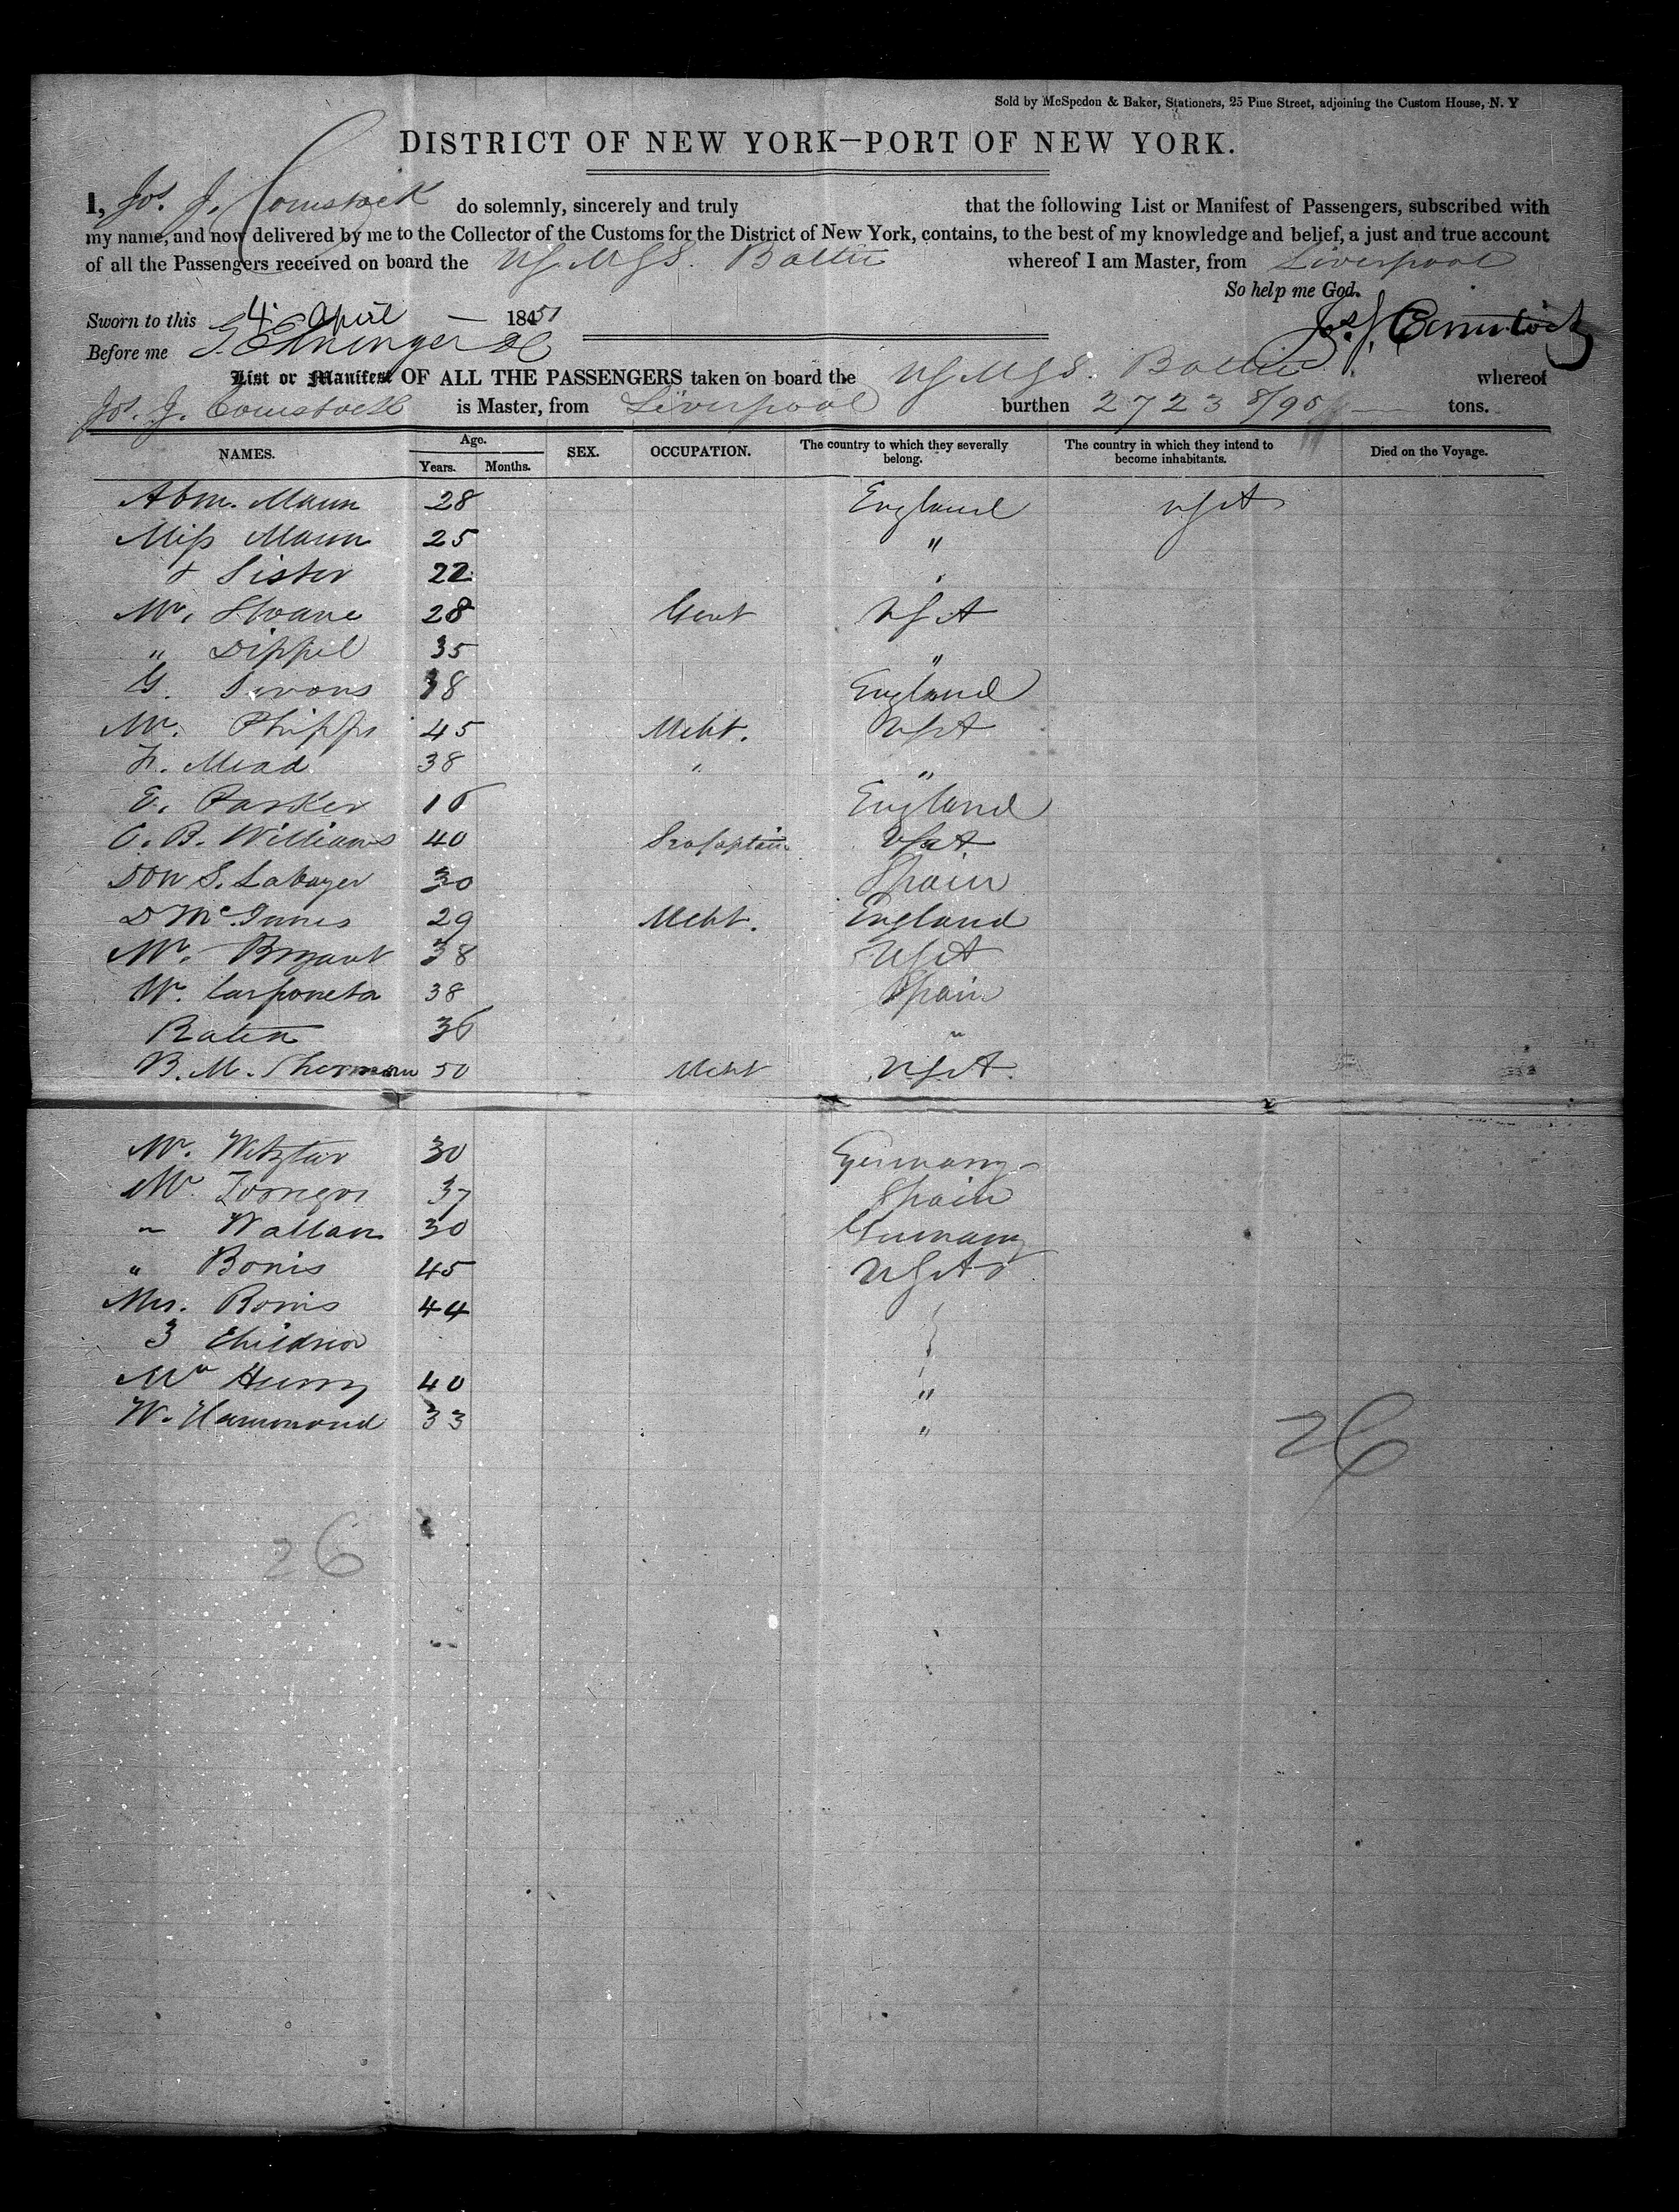 Sold by McSpedon & Baker, Stationers, 25 Pine Street, adjoining the Custom House, N. Y
DISTRICT OF NEW YORK—PORT OF NEW YORK.
I, Jos. J. Comstock do solemnly, sincerely and truly that the following List or Manifest of Passengers, subscribed with
my name, and now delivered by me to the Collector of the Customs for the District of New York, contains, to the best of my knowledge and belief, a just and true account
of all the Passengers received on board the USMSS. Baltic whereof I am Master, from Liverpool
So help me God.
Sworn to this 4 April 1851 Jos. J. Comstock
Before me
List or Manifest OF ALL THE PASSENGERS taken on board the USMSS. Baltic whereof
Jos. J. Comstock is Master, from Liverpool burthen 2723 8/95 tons.
NAMES. Age. Years. Months. SEX. OCCUPATION. The country to which they severally belong. The country in which they intend to become inhabitants. Died on the Voyage.
Abm. Mann 28 England USA
Miss Mann 25 "
& Sister 22
Mr. Sloane 28 Gent USA
" Dippel 35 "
G. 18 England
Mr. Phipps 45 Mcht. USA
F. Mead 38 " "
E. Parker 16 England
C. B. Williams 40 USA
Don S. Labayer 30 Spain
D McInnes 29 Mcht. England
Mr. Bryant 38 USA
W. 38 Spain
36 "
B. M. Sherman 50 Mcht USA
Mr. Wetzlar 30 Germany
Mr. 37 Spain
" Wallan 30 Germany
" Bonis 45 USA
Mrs. Bonis 44
3 Children
Mr Henry 40 "
W. Hammond 33 "
26
26